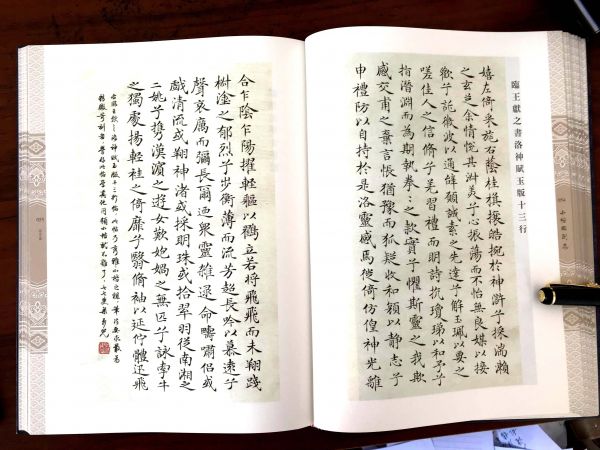 臨王獻之書洛神賦玉版十三行
嬉左倚采旄右蔭桂旗攘皓捥於神滸兮採湍瀨
之玄芝余情悅其淑美兮心振蕩而不怡無良媒以接
歡兮託微波以通辭願誠素之先達兮解玉珮以要之
嗟佳人之信脩兮羌習禮而明詩抗瓊珶以和予兮
指潛淵而為期執拳〻之款實兮懼斯靈之我欺
感交甫之棄言悵猶豫而狐疑收和顏以靜志兮
申禮防以自持於是洛靈感焉徙倚仿偟神光離
合乍陰乍陽擢輕軀以鶴立若將飛而未翔踐
椒塗之郁烈兮步衡薄而流芳超長吟以慕遠兮
聲哀厲而彌長爾迺眾靈雜遝命疇嘯侶或
戲清流或翔神渚或採明珠或拾翠羽從南湘之
二妃兮攜漢濱之遊女歎匏媧之無匹兮詠牽牛
之獨處揚輕袿之倚靡兮翳脩袖以延佇體迅飛
洛神賦玉版十三行